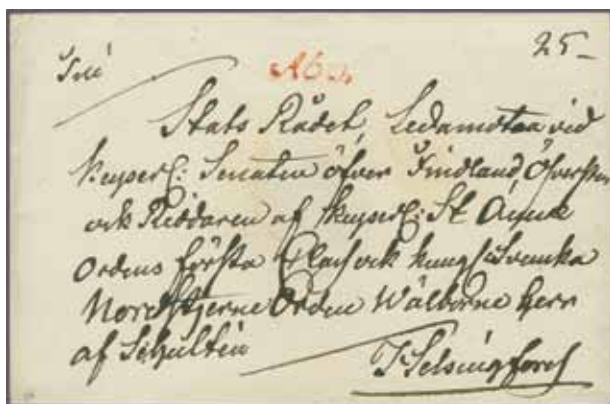 25_
Åbo,
Stats Rådet, Ledamoten vid
Keyserl: Senaten öfver Finland, Öfversten
och Riddaren af Keyserl: St Annæ
Ordens första Class och Kungl: Svenska
Nordstjerne Orden Wälborne herr
af Schultén
Helsingfors